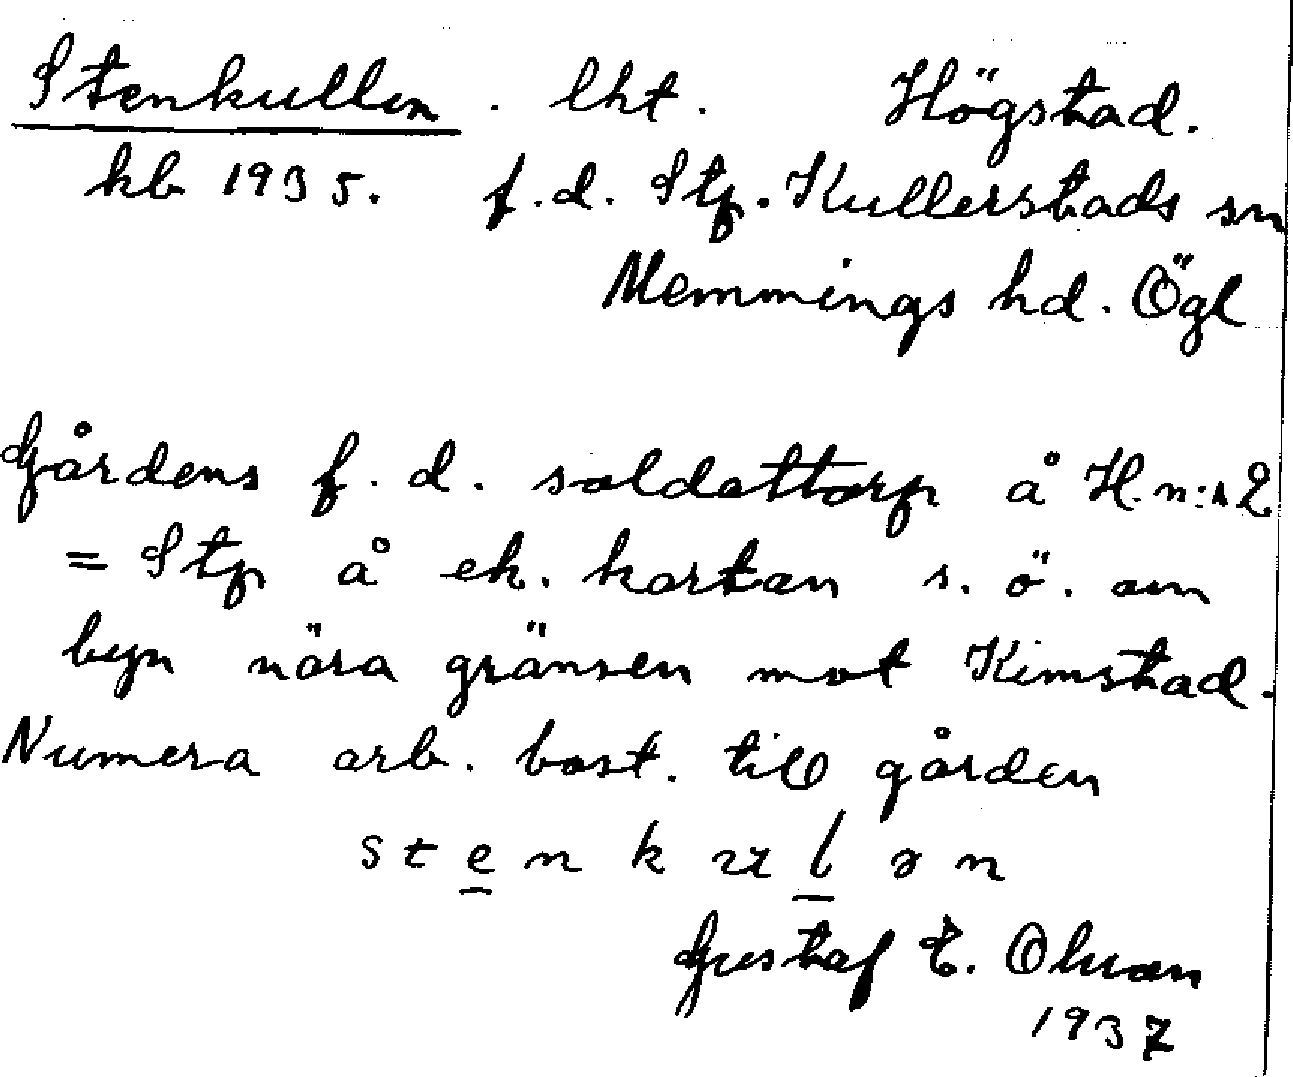 Stenkullen . lht . Högstad.
kb 1935. f.d. Stp. Kullerstads sn
Memmings hd. Ögl
Gårdens f. d. soldattorp å H. n:r 2
= Stp å ek. kartan s. ö. om
byn nära gränsen mot Kimstad.
Numera arb. bost. till gården
stenkulən
Gustaf E. Olsson
1937